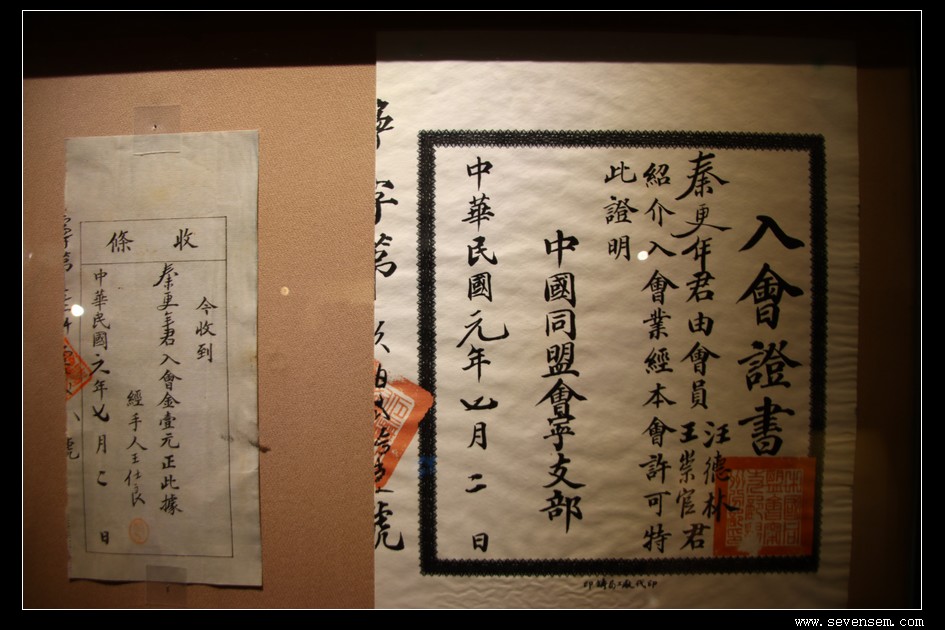 入會證書
秦更年君由會員汪德林王崇官君
紹介入會業經本會許可特
此證明
中國同盟會寧支部
中華民國元年七月二日
字第
號
印鑄
收條
今收到
秦更年君入會金壹元正此據
經手人王仕良
中華民國元年七月 日
www.sevensem.com